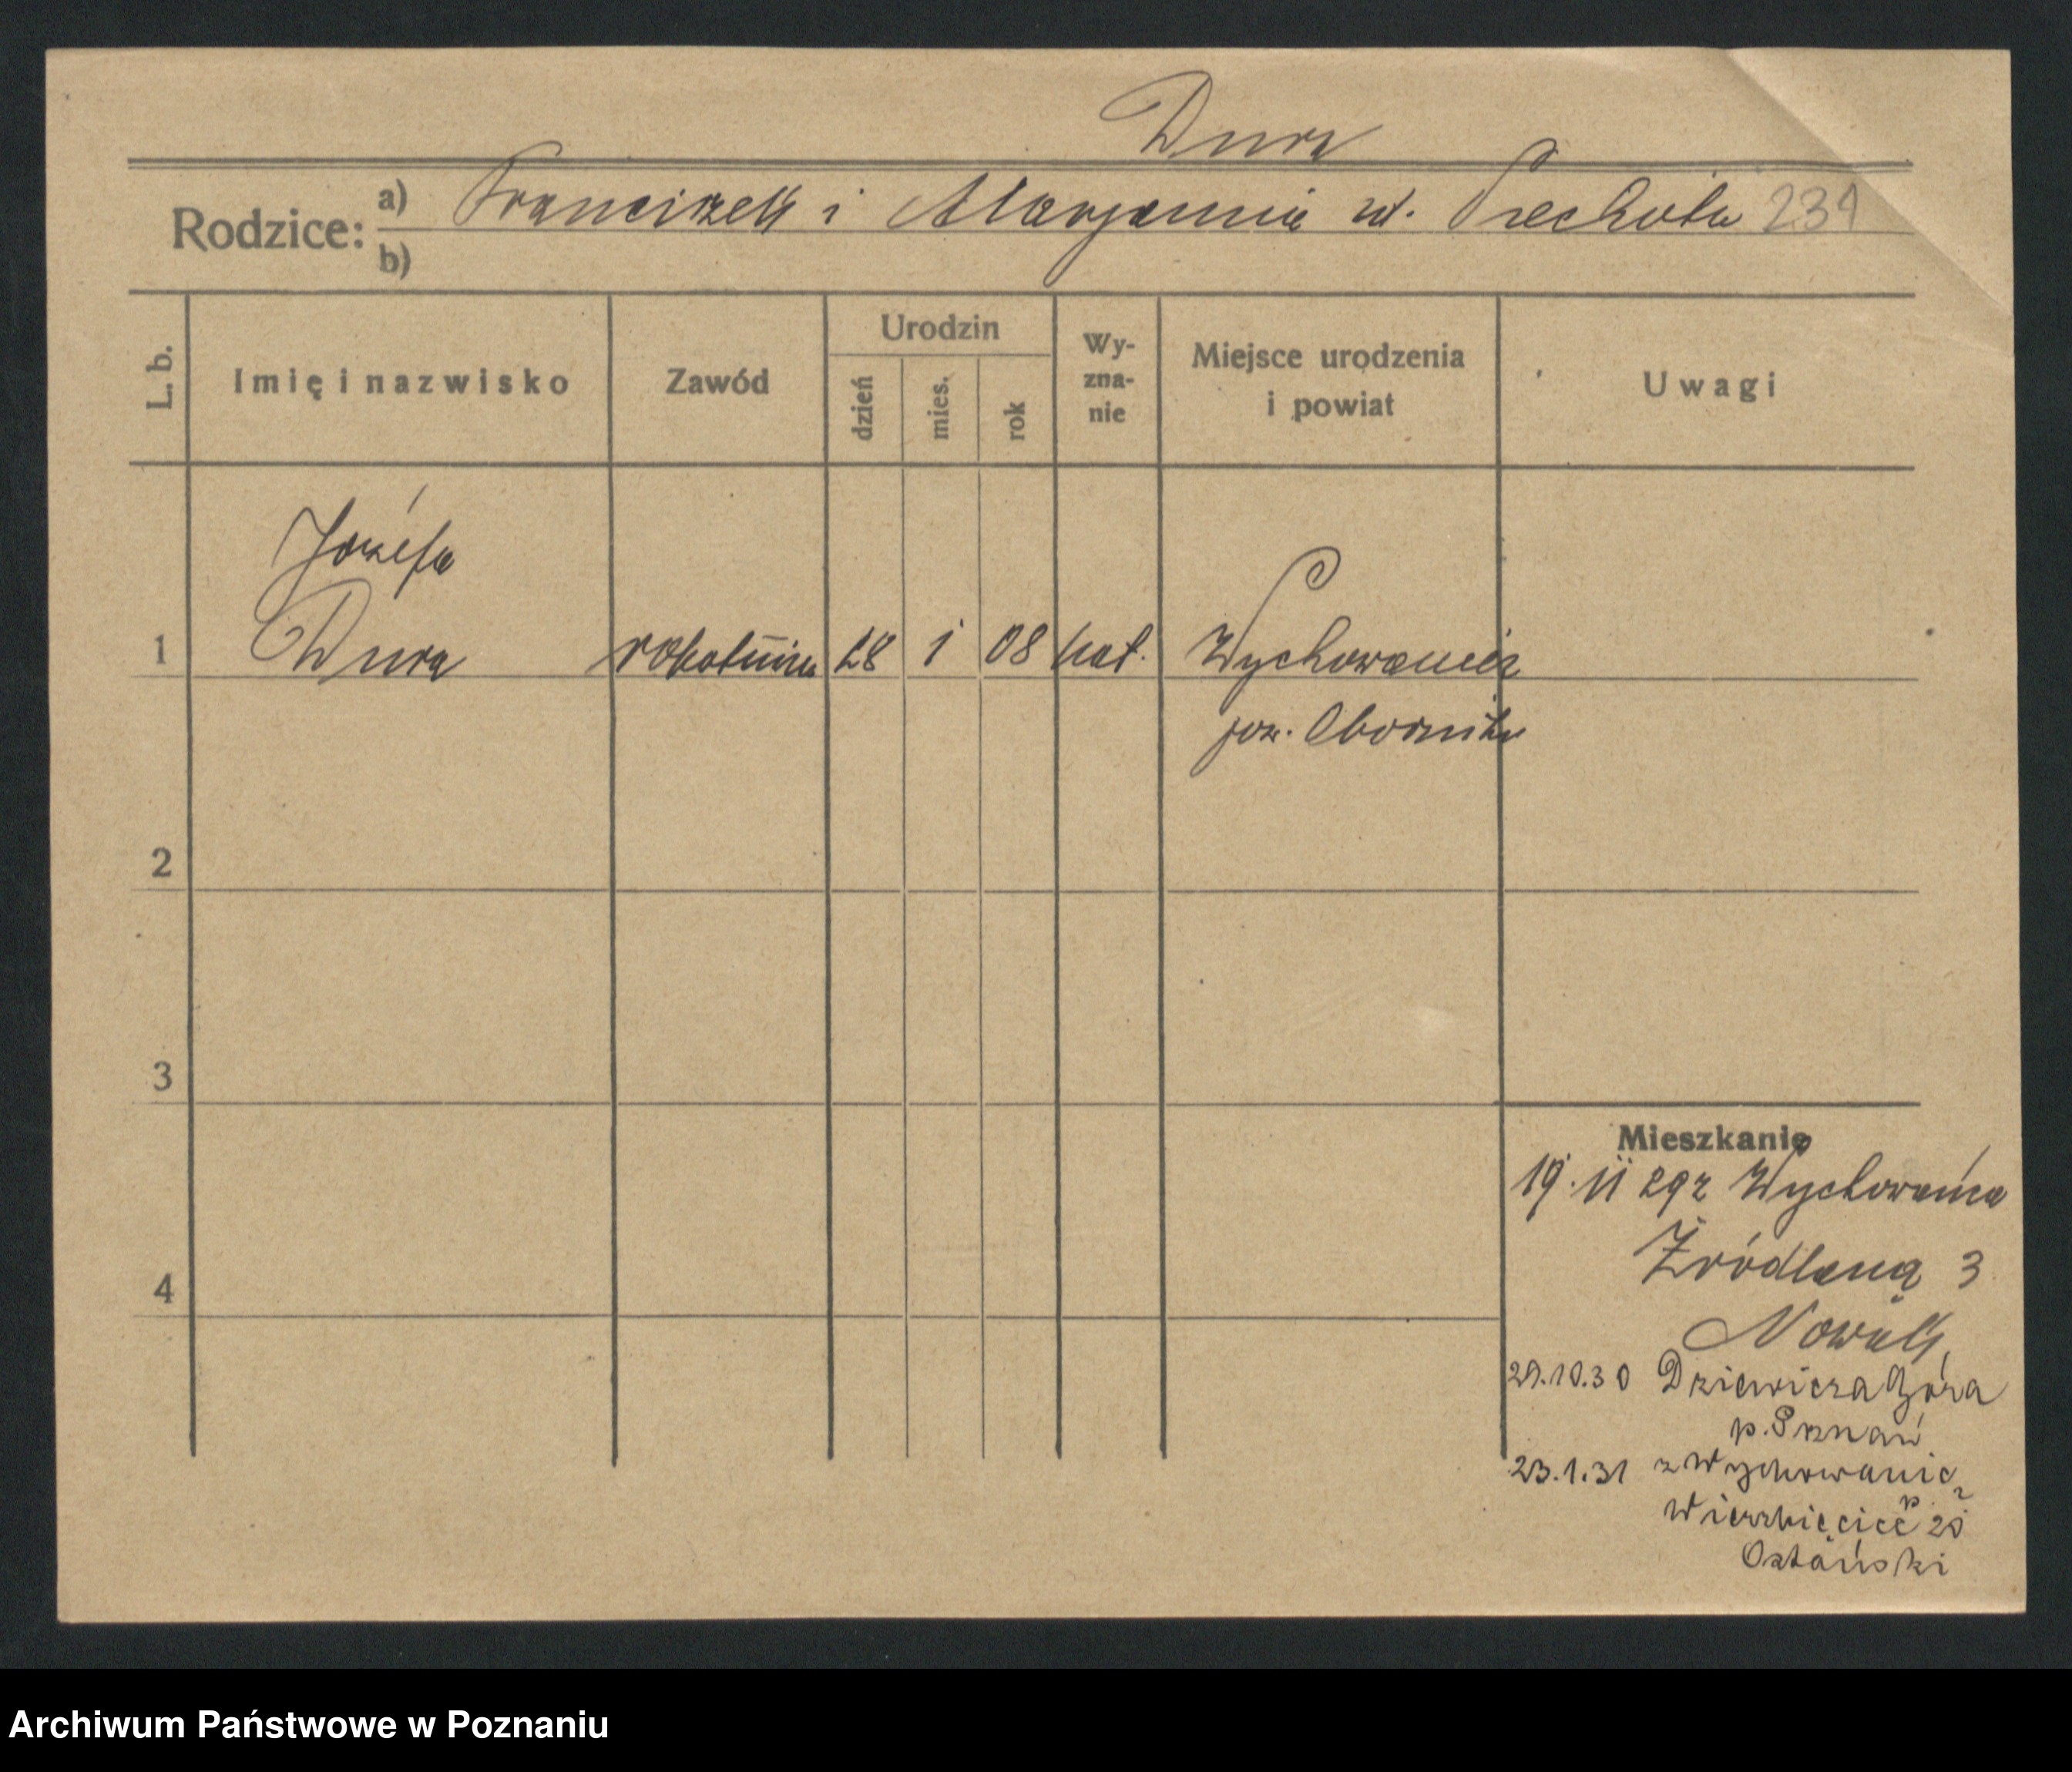 Dura
Rodzice: a) Franciszek i Maryanna ur. Piechota 234
b)
L. b. Imię i nazwisko Zawód Urodzin dzień mies. rok Wy-zna-nie Miejsce urodzenia i powiat Uwagi
Józefa
1 Dura robotnica 28 1 08 kat. Wychowaniec
pow. Oborniki
2
3
Mieszkanie
19. 11 29 z Wychowańca
4 Źródlana 3
Nowak
29.10.30 Dziewicza Góra
p. Poznań
23.1.31 z Wychowańca
Wierzbięcice 20
Ostański
Archiwum Państwowe w Poznaniu